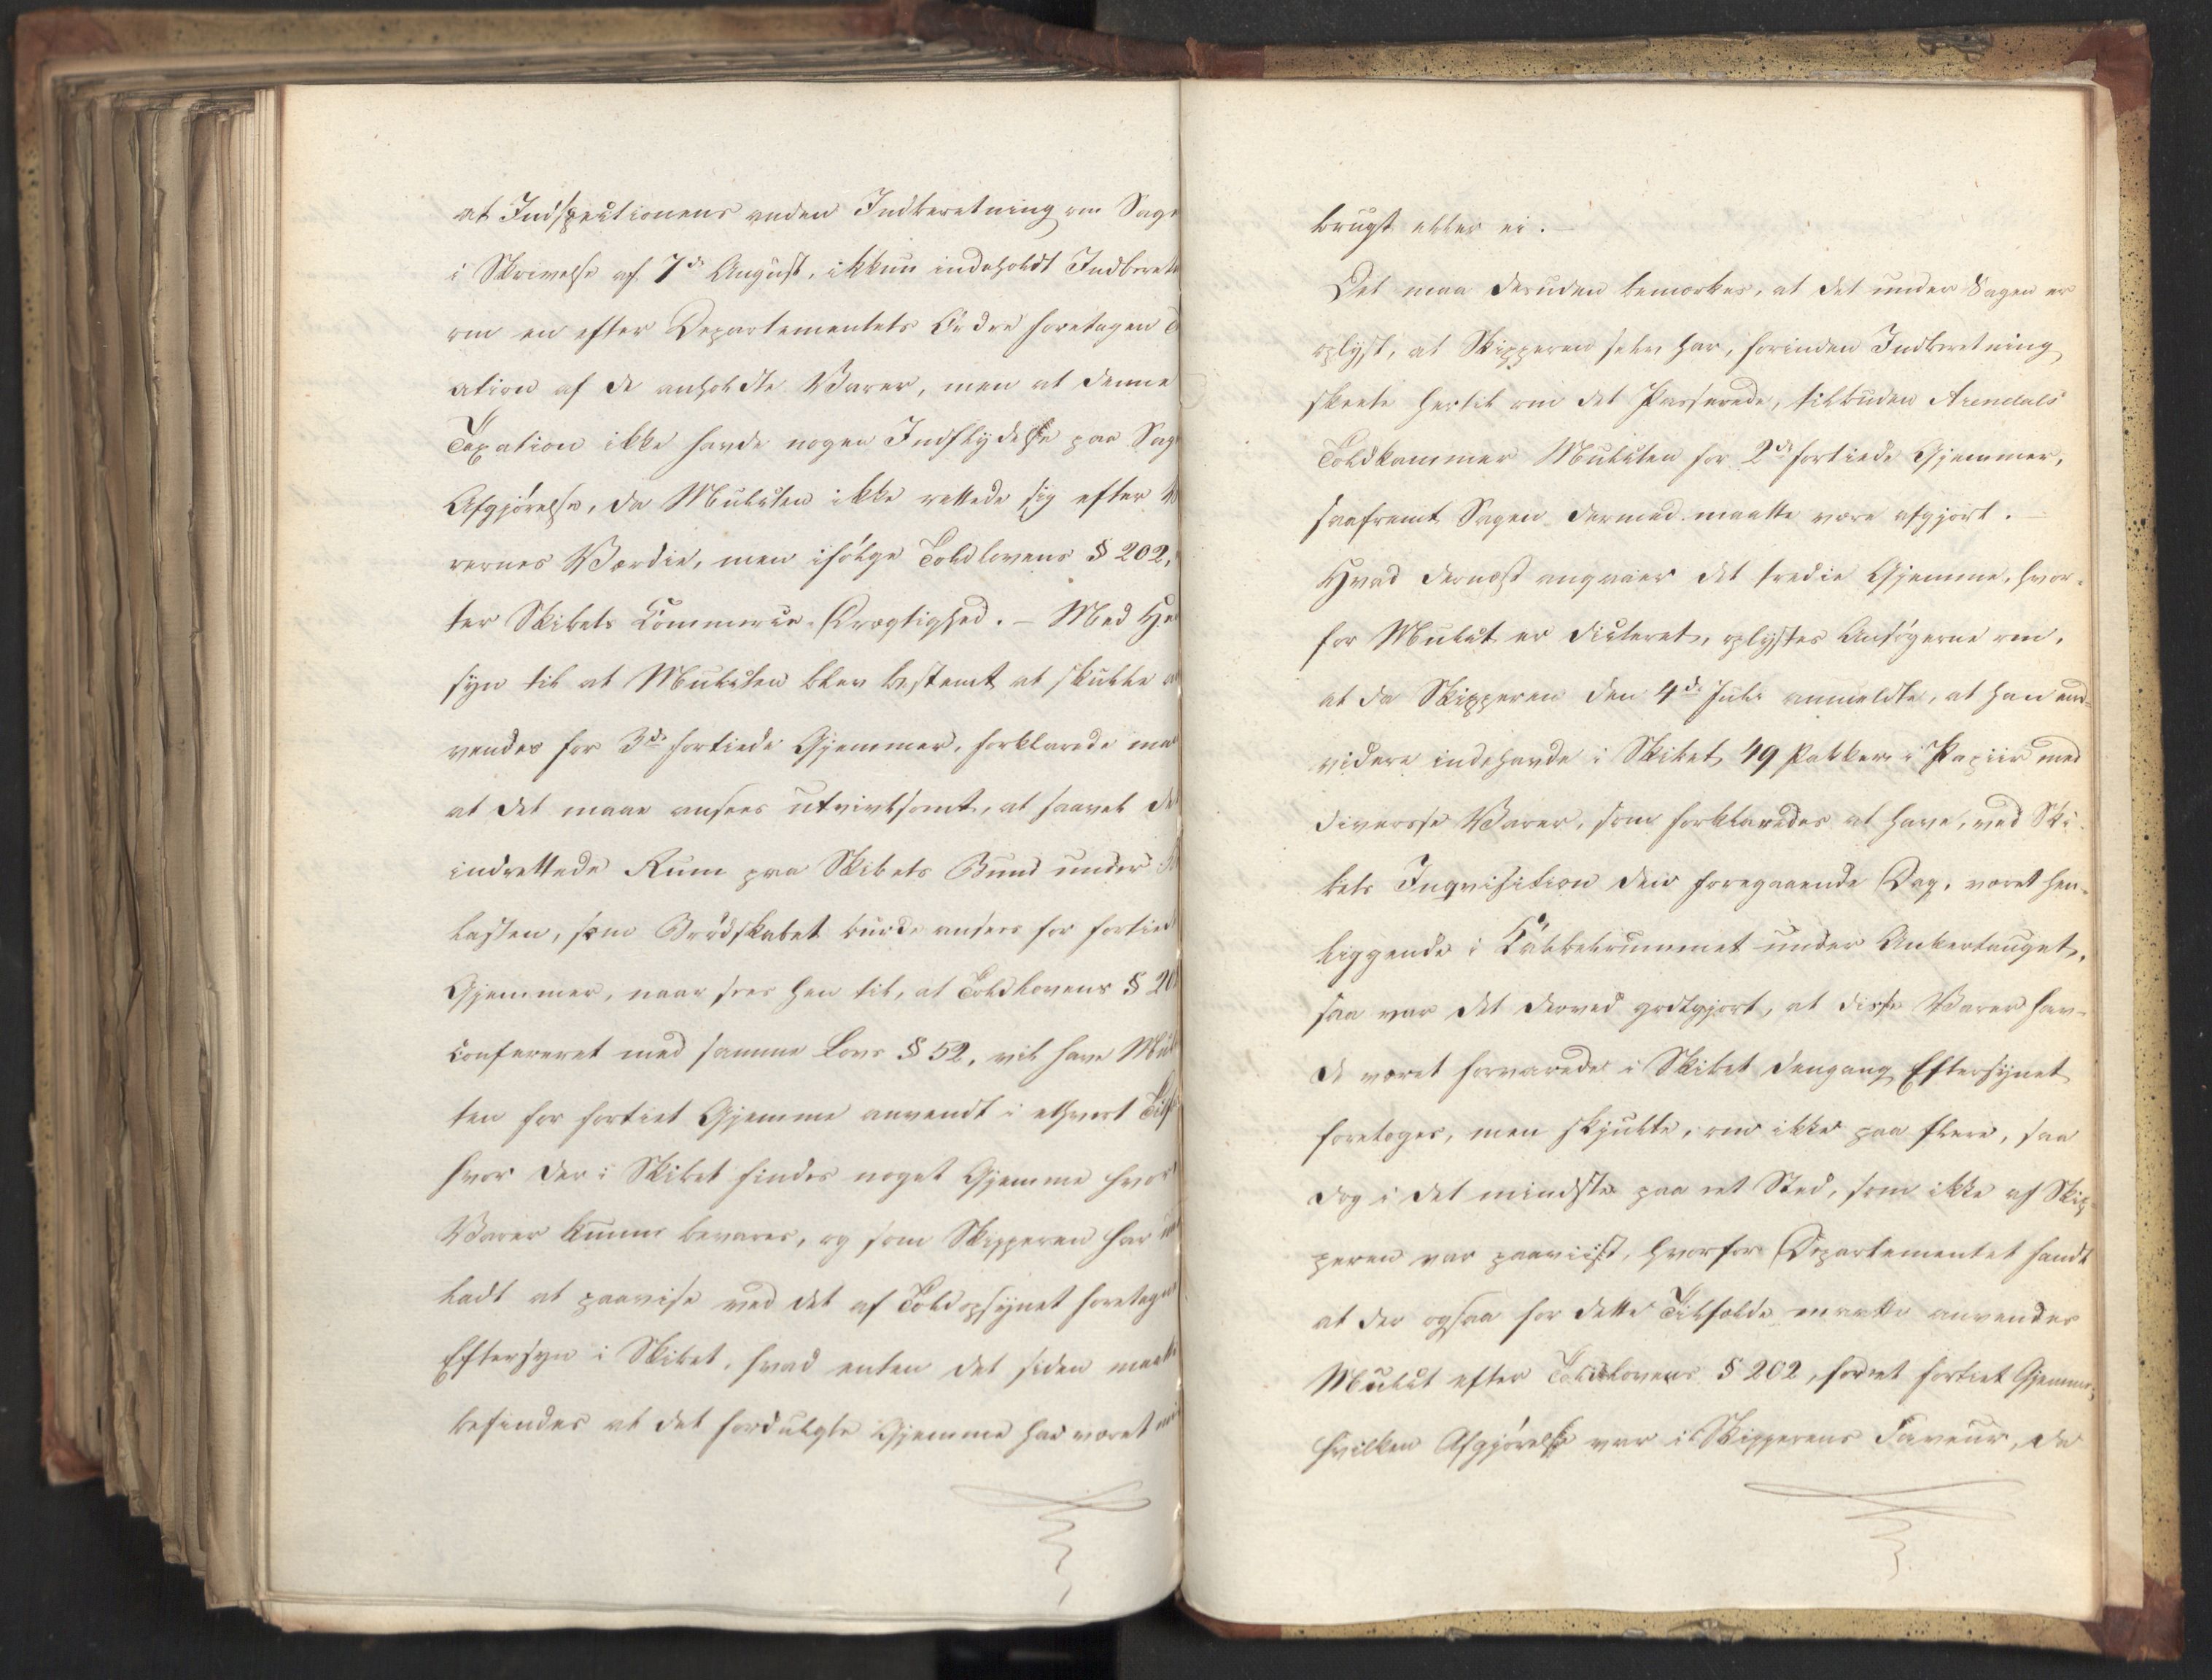 at Indspectionens anden Indberetning om Sage
i Skrivelse af 7de August, ikkun indeholdt Indberet
om en efter Departementets Ordre foretagen
ation af de anholdte Varer, men at denne
Taxation ikke havde nogen Indflydelse paa Sag
Afgjørelse, da Mulcten ikke rettede sig efter
rernes Værdie, men ifølge Toldlovens § 202,
ter Skibets Commerce-Drægtighed. – Med He
syn til at Mulcten blev bestemt at skulle a
vendes for 3de fortiede Gjemmer, forklarede ma
at det maae ansees utvivlsomt, at saavel de
indrettede Rum paa Skibets Bund under
lasten, som Brødskabet burde ansees for fortied
Gjemmer, naar sees hen til, at Toldlovens § 20
confereret med samme Lovs § 52, vil have Mul
ten for fortiet Gjemme anvendt i ethvert Tilf
hvor der i Skibet findes noget Gjemme hvor
Varer kunne bevares, og som Skipperen har und
ladt at paavise ved det af Toldopsynet foretagne
Eftersyn i Skibet, hvad enten det siden maatte
befindes at det fordulgte Gjemme har været
brugt eller ei. –
Det maa desuden bemærkes, at det under Sagen er
oplyst, at Skipperen selv har, forinden Indberetning
skeete hertil om det Passerede, tilbuden Arendals
Toldkammer Mulcten for 2de fortiede Gjemmer,
saafremt Sagen dermed maatte være afgjort. –
Hvad dernæst angaaer det tredie Gjemme, hvor-
for Mulct er dicteret, oplystes Ansøgerne om,
at da Skipperen den 4de Juli anmeldte, at han end-
videre indehavde i Skibet 49 Pakker i Papiir med
diverse Varer, som forklaredes at have, ved Ski-
bets Inqvisition den foregaaende Dag, været hen-
liggende i Kabbelrummet under Ankertauget,
saa var det derved godtgjort, at disse Varer hav-
de været forvarede i Skibet dengang Eftersynet
foretoges, men skjulte, om ikke paa flere, saa
dog i det mindste paa eet Sted, som ikke af Skip-
peren var paaviist, hvorfor Departementet fandt
at der ogsaa for dette Tilfælde maatte anvendes
Mulct efter Toldlovens § 202, for et fortiet Gjemme,
hvilken Afgjørelse var i Skipperens Faveur, da